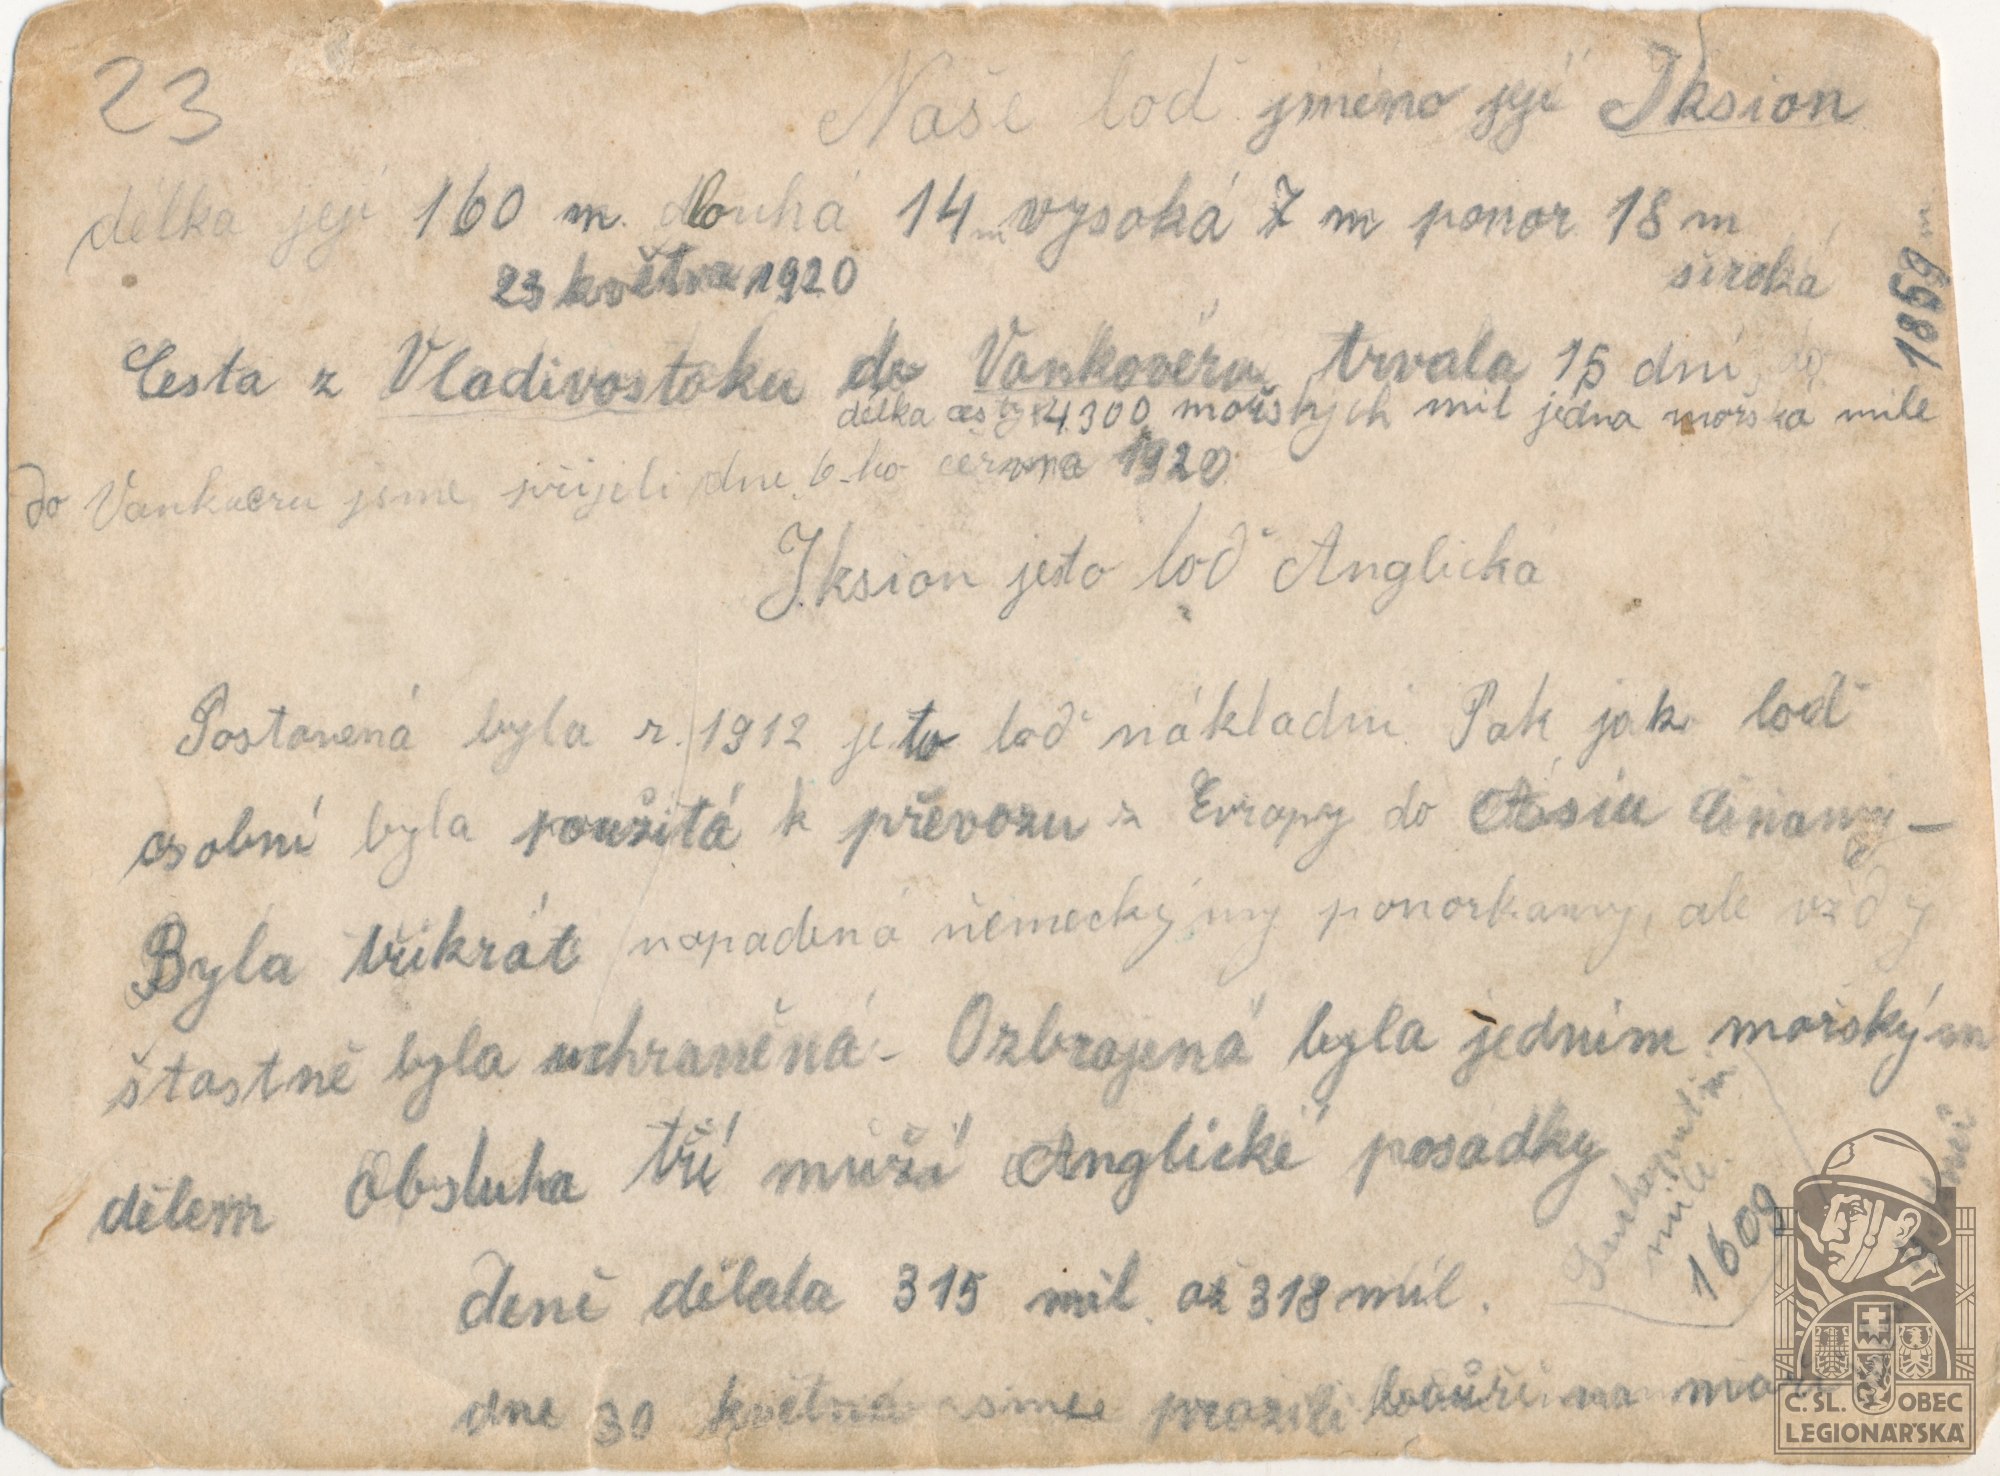 23
Naše loď jméno její Iksion
délka její 160 m. dlouhá 14 m vysoká 7 m ponor 18 m
široká
23 května 1920
Cesta z Vladivostoku do Vankovéru trvala 15 dní do
délka cesty 4300 mořských mil jedna mořská míle
1859 m
do Vankueru jsme přijeli dne 6-ho června 1920
Iksion jesto loď Anglická
Postavená byla r. 1912 jeto loď nákladní Pak jako loď
osobní byla použitá k převozu z Evropy do Asiu Činany –
Byla třikrát napadená německýmy ponorkamy, ale vždy
štastně byla uchraněná – Ozbrojená byla jedním mořským
dělem Obsluha tří mužů Anglické posádky
míle.
1609
deně dělala 315 mil. až 318 mil.
dne 30 května sme prožili bouři na
Č. SL. OBEC
LEGIONÁŘSKÁ